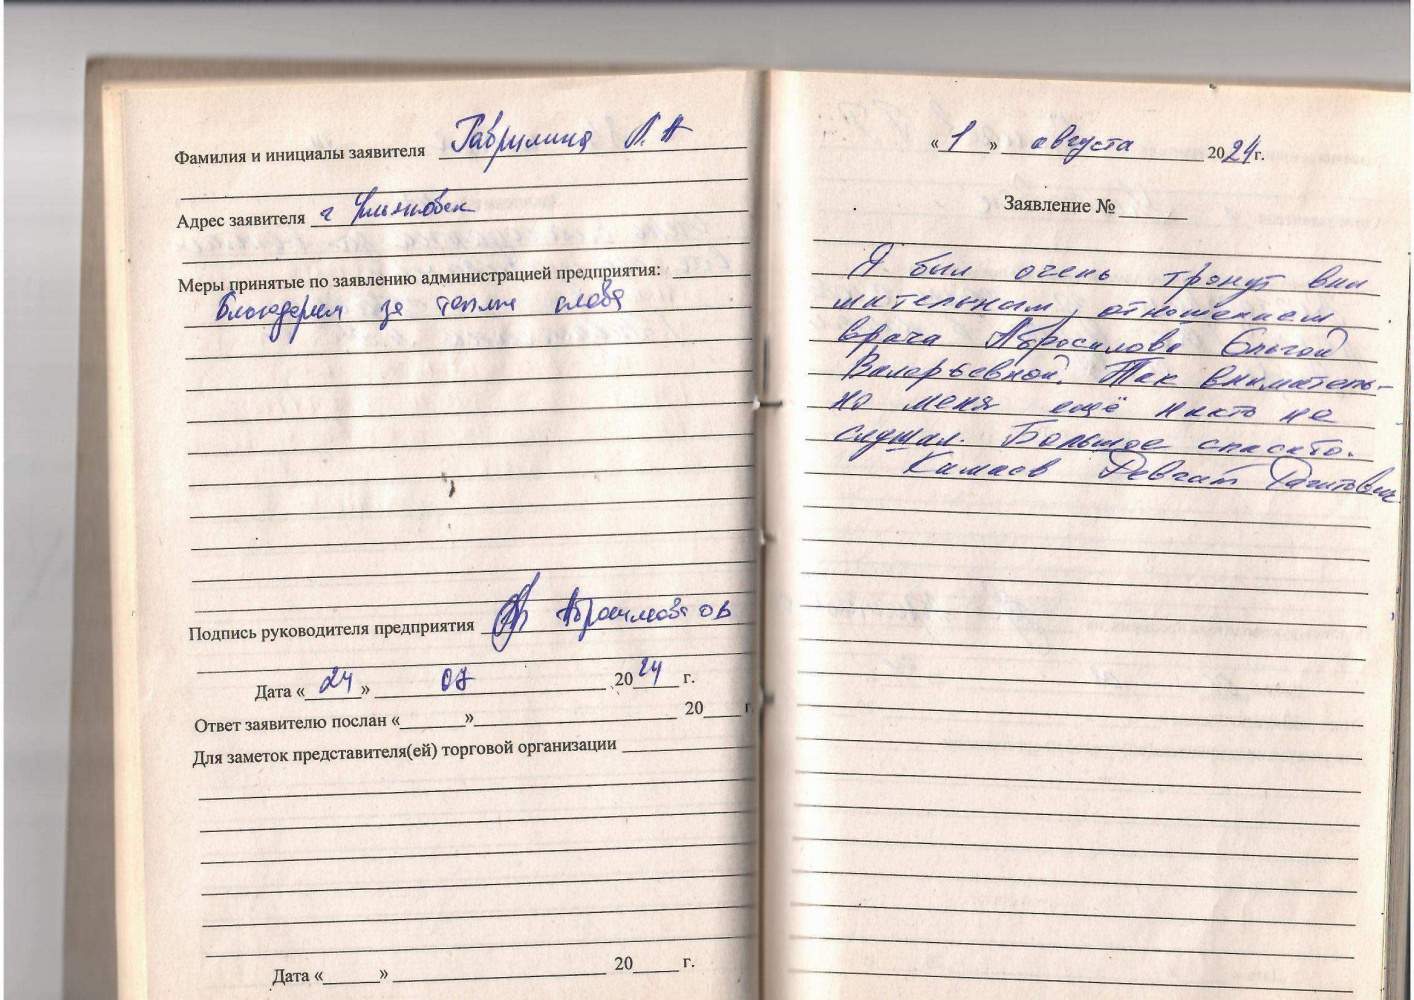 Фамилия и инициалы заявителя Гаврилина Л. А
Адрес заявителя г Ульяновск
Меры принятые по заявлению администрацией предприятия:
Благодарим за теплые слова
Подпись руководителя предприятия
Дата «24» 07 2024 г.
Ответ заявителю послан «_______»______________________ 20____ г.
Для заметок представителя(ей) торговой организации
Дата «______» ______________________ 20_____ г.
«1» августа 2024г.
Заявление № _______
Я был очень тронут вни
мательным отношением
врача Абросимова Ольгой
Валерьевной. Так вниматель-
но меня ещё никто не
слушал. Большое спасибо.
Камаев